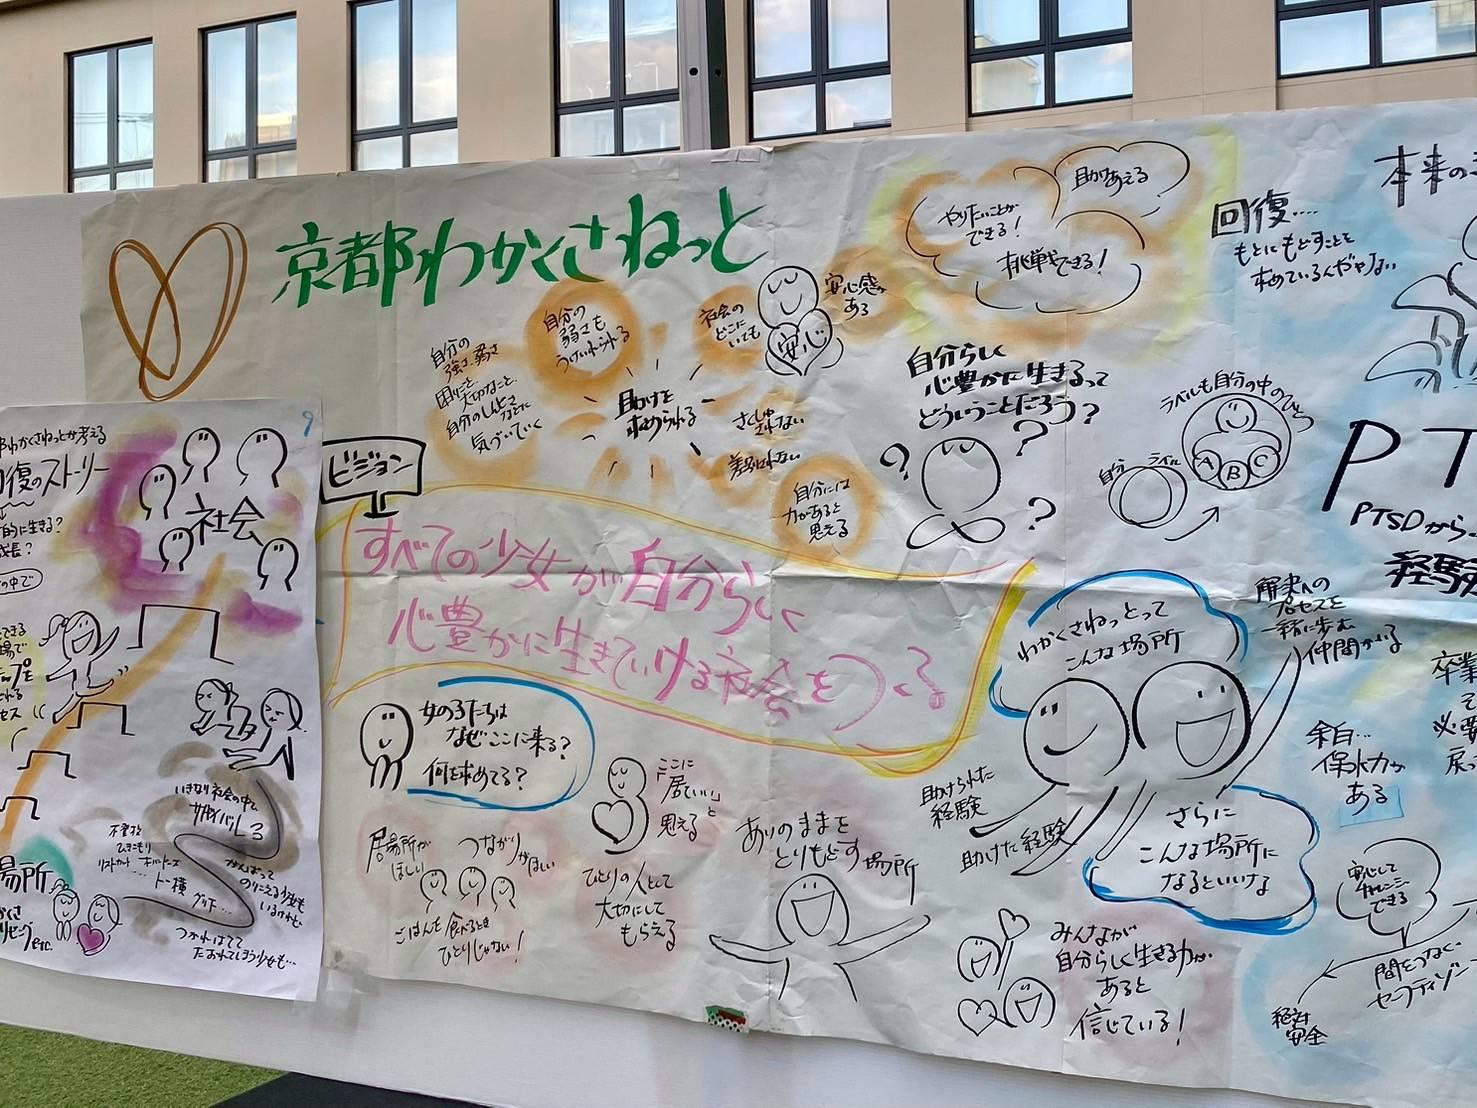 京都わかくさねっと
ビジョン
すべての少女が自分らしく
心豊かに生きていける社会をつくる
自分の
強さ、弱さ
困りごと
大切なこと、
気づいていく
自分の
弱さも
うけいれられる
助けを
求められる
社会の
どこに
いても
安心
安心感が
ある
さくしゅ
されない
差別されない
自分には
力があると
思える
やりたいことが
できる!
助けあえる
挑戦できる!
自分らしく
心豊かに生きるって
どういうことだろう?
?
?
?
回復....
もとにもどすことを
求めているんじゃない
本来の
ラベルも自分の中のひとつ
自分
ラベル
A
B
C
PT
PTSDから
経験
9
わかくさねっとが考える
回復のストーリー
的に生きる?
成長?
の中で
社会
できる
場で
いきなり社会の中で
サバイバルする
不登校
ひきこもり
リストカット
トー横
グリ下...
がんばって
のりこえる少女も
いるけれど
つかれはてて
たおれてしまう少女も...
場所
etc.
女の子たちは
なぜここに来る?
何を求めてる?
居場所が
ほしい
つながりがほしい
ごはんを食べるとき
ひとりじゃない!
ここに
「居ていい」と
思える
ひとりの人として
大切にして
もらえる
ありのままを
とりもどす場所
わかくさねっとって
こんな場所
助けられた
経験
助けた経験
解決への
プロセスを
一緒に歩む
仲間がいる
さらに
こんな場所に
なるといいな
みんなが
自分らしく生きる力が
あると
信じている!
余白...
保水力が
ある
卒業
必要
戻っ
安心して
チャレンジ
できる
間をつなぐ
セーフティゾーン
絶対
安全